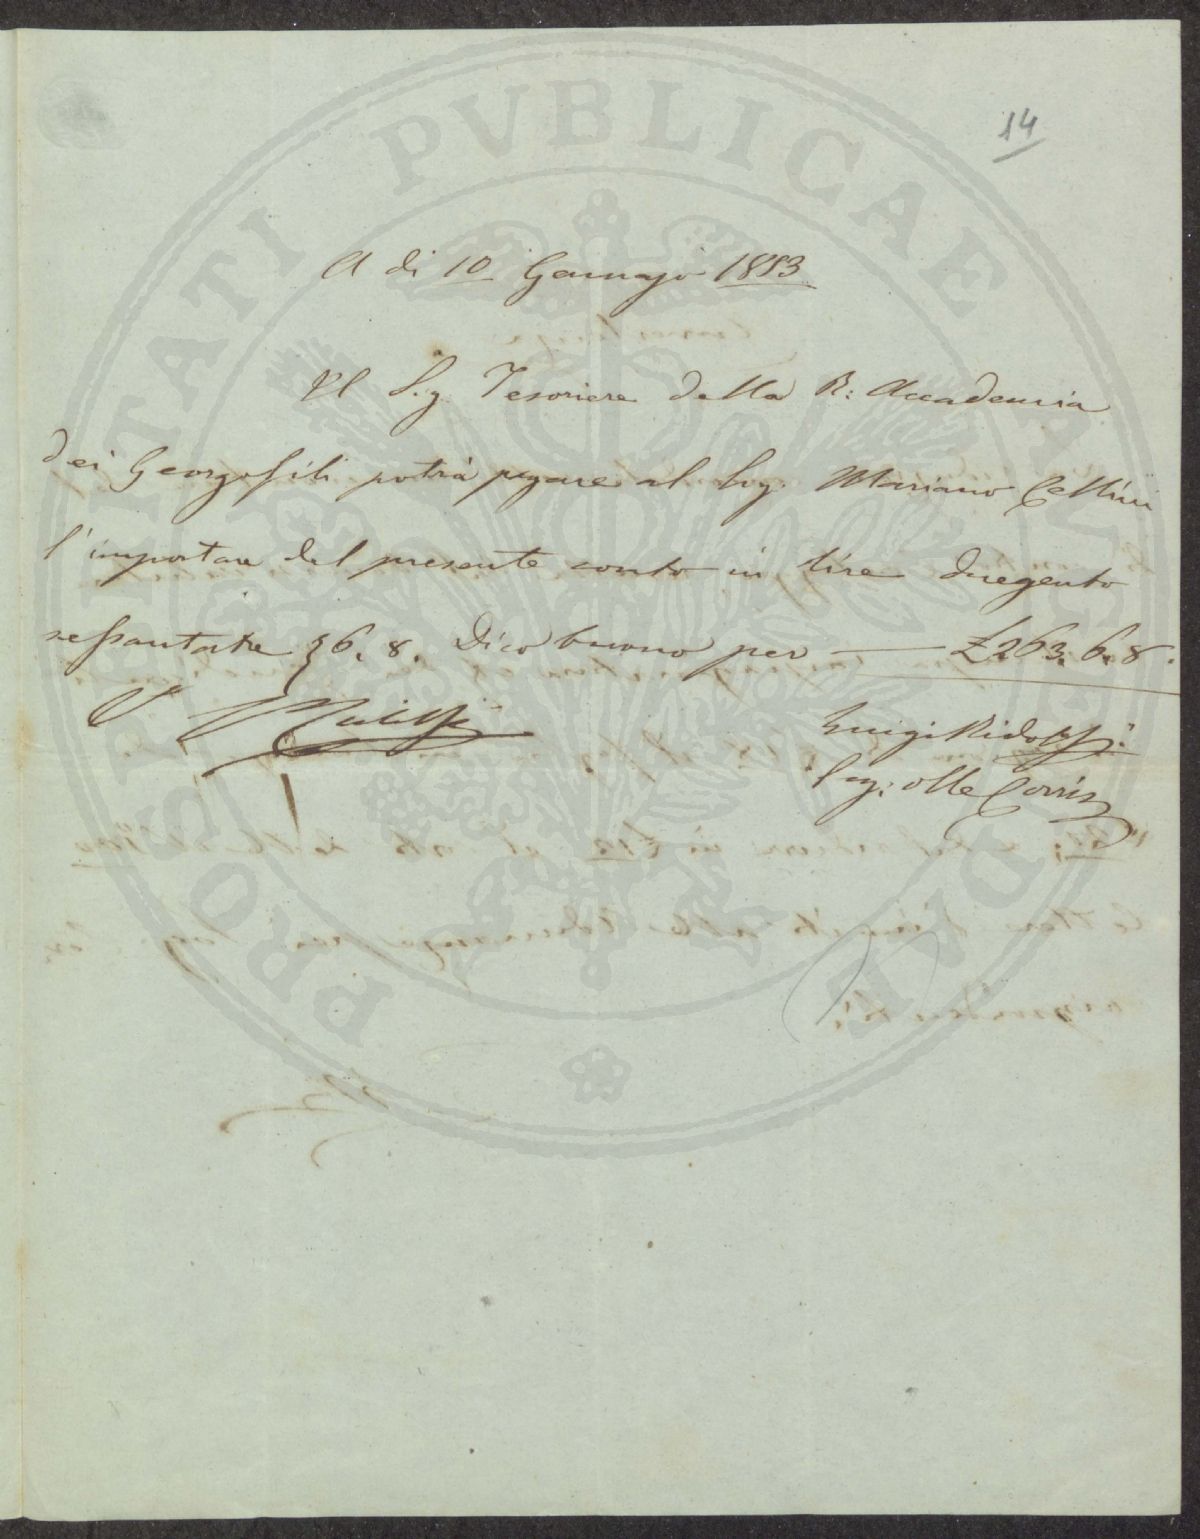 14
A di 10 Gennajo 1853
Il Sig. Tesoriere della R: Accademia
dei Georgofili potrà pagare al Sig. Mariano Cellini
l'importare del presente conto in lire dugento
sessantatre 6. 8. Dico buono per — £ 263. 6. 8.
V
Luigi Ridolfi
Seg: delle Corris
PROSPERITATI PVBLICAE AVGENDAE